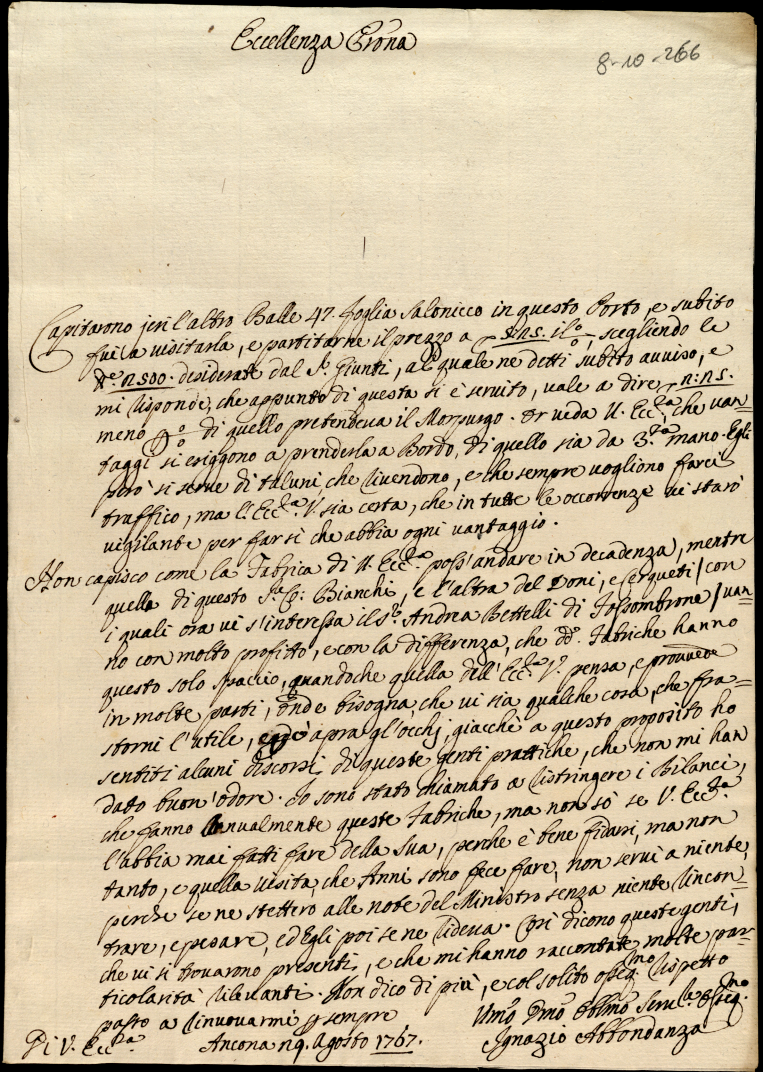 Eccellenza Prona
8-10-266
Capitarono jeri l'altro Balle 47. foglia Salonicco in questo Porto, e subito
fui a visitarla, e partitarne il prezzo a scegliendo le
desiderate dal Sr. Giunti, al quale ne detti subito avviso, e
mi rispondè, che appunto di questa si è servito, vale a dire
meno di quello pretendeva il Morpurgo. Or veda V. Ecc.za, che van=
taggi si esiggono a prenderla a Bordo, di quello sia da 3.za mano. Egli
però si serve di taluni, che rivendono, e che sempre vogliono farci
traffico, ma l'Ecc.za V. sia certa, che in tutte le occorrenze vi starò
vigilante per far sì che abbia ogni vantaggio.
Non capisco come la Fabrica di V. Ecc.za poss'andare in decadenza, mentre
quella di questo Sr. Co: Bianchi, e l'altra del Doni, e Cerqueti /con
i quali ora vi s'interessa il Sr. Andrea Bettelli di Fossombrone/ van=
no con molto profitto, e con la differenza, che dd. Fabriche hanno
questo solo spaccio, quandoche quella dell'Ecc.za V. pensa, e provvede
in molte parti, onde bisogna, che vi sia qualche cosa, che fra=
storni l'utile, apra gl'occhj, giacchè a questo proposito ho
sentiti alcuni discorsi di queste genti prattiche, che non mi han
dato buon'odore. Io sono stato chiamato a ristringere i Bilanci,
che fanno annualmente queste Fabriche, ma non sò se V. Ecc.za
l'abbia mai fatti fare della Sua, perche è bene fidarsi, ma non
tanto, e quella visita, che Anni sono fece fare, non servì a niente,
perche se ne stettero alle note del Ministro senza niente rincon=
trare, e pesare, ed Egli poi se ne rideva. Così dicono queste genti,
che vi si trovarono presenti, e che mi hanno raccontate molte par=
ticolarità rilevanti. Non dico di più, e col solito osseq.mo rispetto
passo a rinuovarmi p sempre
Di V. Ecc.za
Ancona n9. Agosto 1767.
Umo Dmo Obbmo Serv.re Osseq.mo
Ignazio Abbondanza